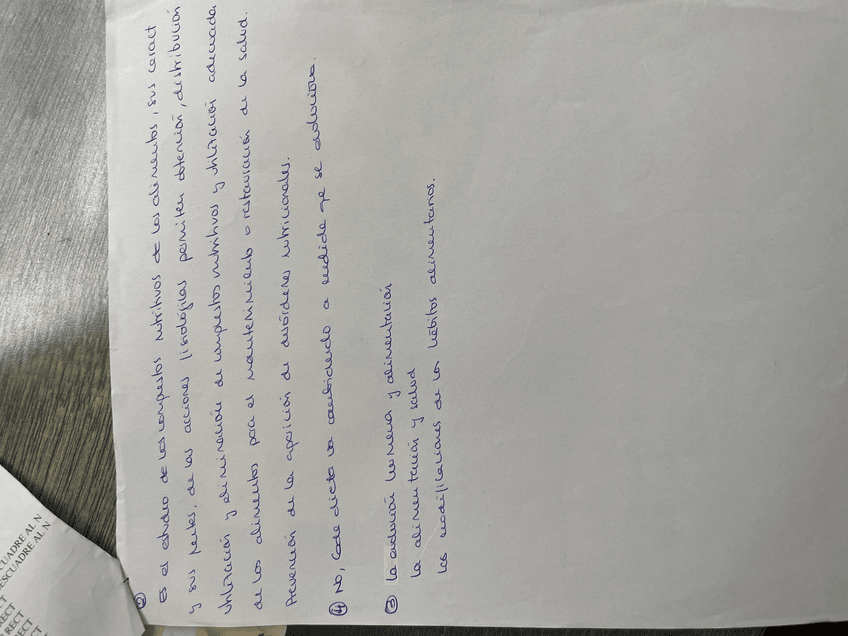 ②
Es el estudio de los compuestos nutritivos de los alimentos, sus caract
y sus , de las acciones fisiológicas permiten obtención, distribución
Utilización y eliminación de compuestos nutritivos y utilización adecuada
de los alimentos para el mantenimiento o restauración de la salud.
Prevención de la aparición de desórdenes nutricionales.
④ No, Cada dieta va cambiando a medida qe se evoluciona.
③ La evolución humana y alimentación
La alimentación y salud
Las modificaciones de los hábitos alimentarios.
CUADRE AL N
DESCUADRE AL N
RECT
RECT
RECT